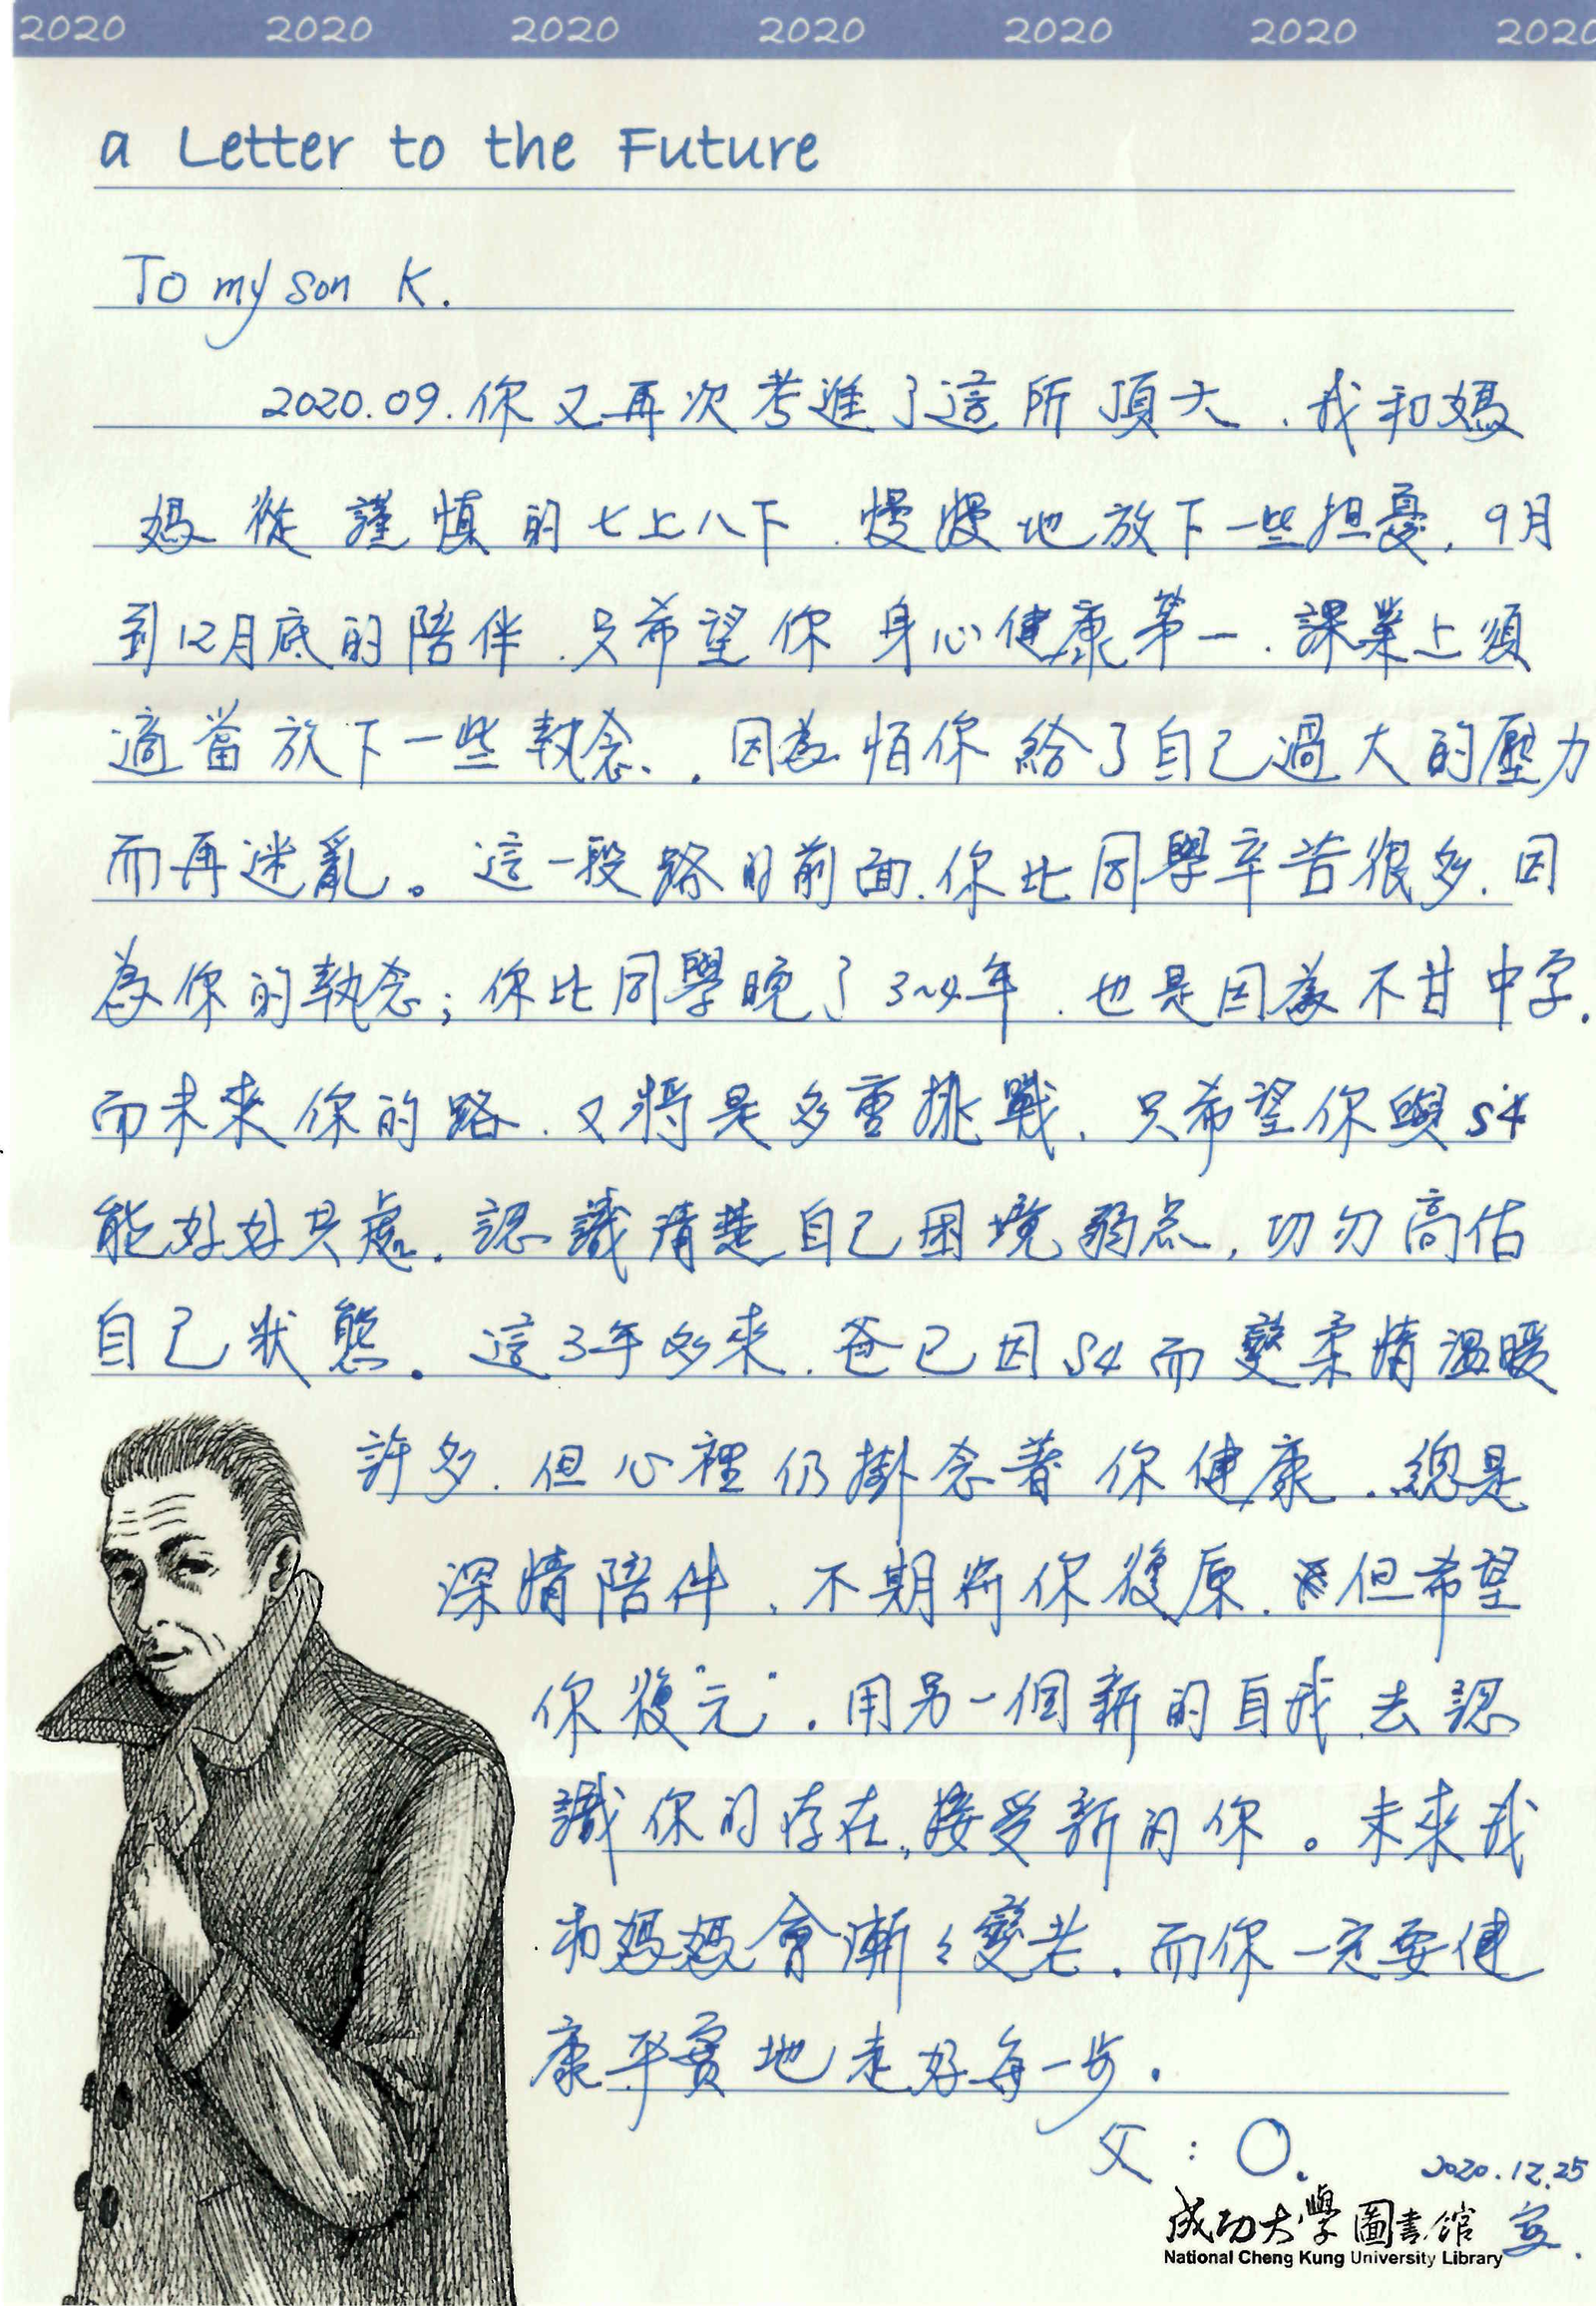 2020 2020 2020 2020 2020 2020 2020
a Letter to the Future
To my son K.
2020.09.你又再次考進了這所頂大．我和媽
媽從謹慎的七上八下．慢慢地放下一些担憂，9月
到12月底的陪伴．只希望你身心健康第一．課業上須
適當放下一些執念．因為怕你給了自己過大的壓力
而再迷亂。這一段路的前面．你比同學辛苦很多．因
為你的執念；你比同學晚了3~4年．也是因為不甘中字．
而未來你的路．又將是多重挑戰．只希望你與S4
能好好共處．認識清楚自己困境弱点，切勿高估
自己狀態。這3年多來．爸已因S4而變柔情溫暖
許多．但心裡仍掛念著你健康．總是
深情陪伴．不期將你復原．但希望
你復"元"．用另一個新的自我去認
識你的存在，接受新的你。未來我
和媽媽會漸々變老．而你一定要健
康平實地走好每一步．
父：○．
2020.12.25
成功大學圖書館
National Cheng Kung University Library